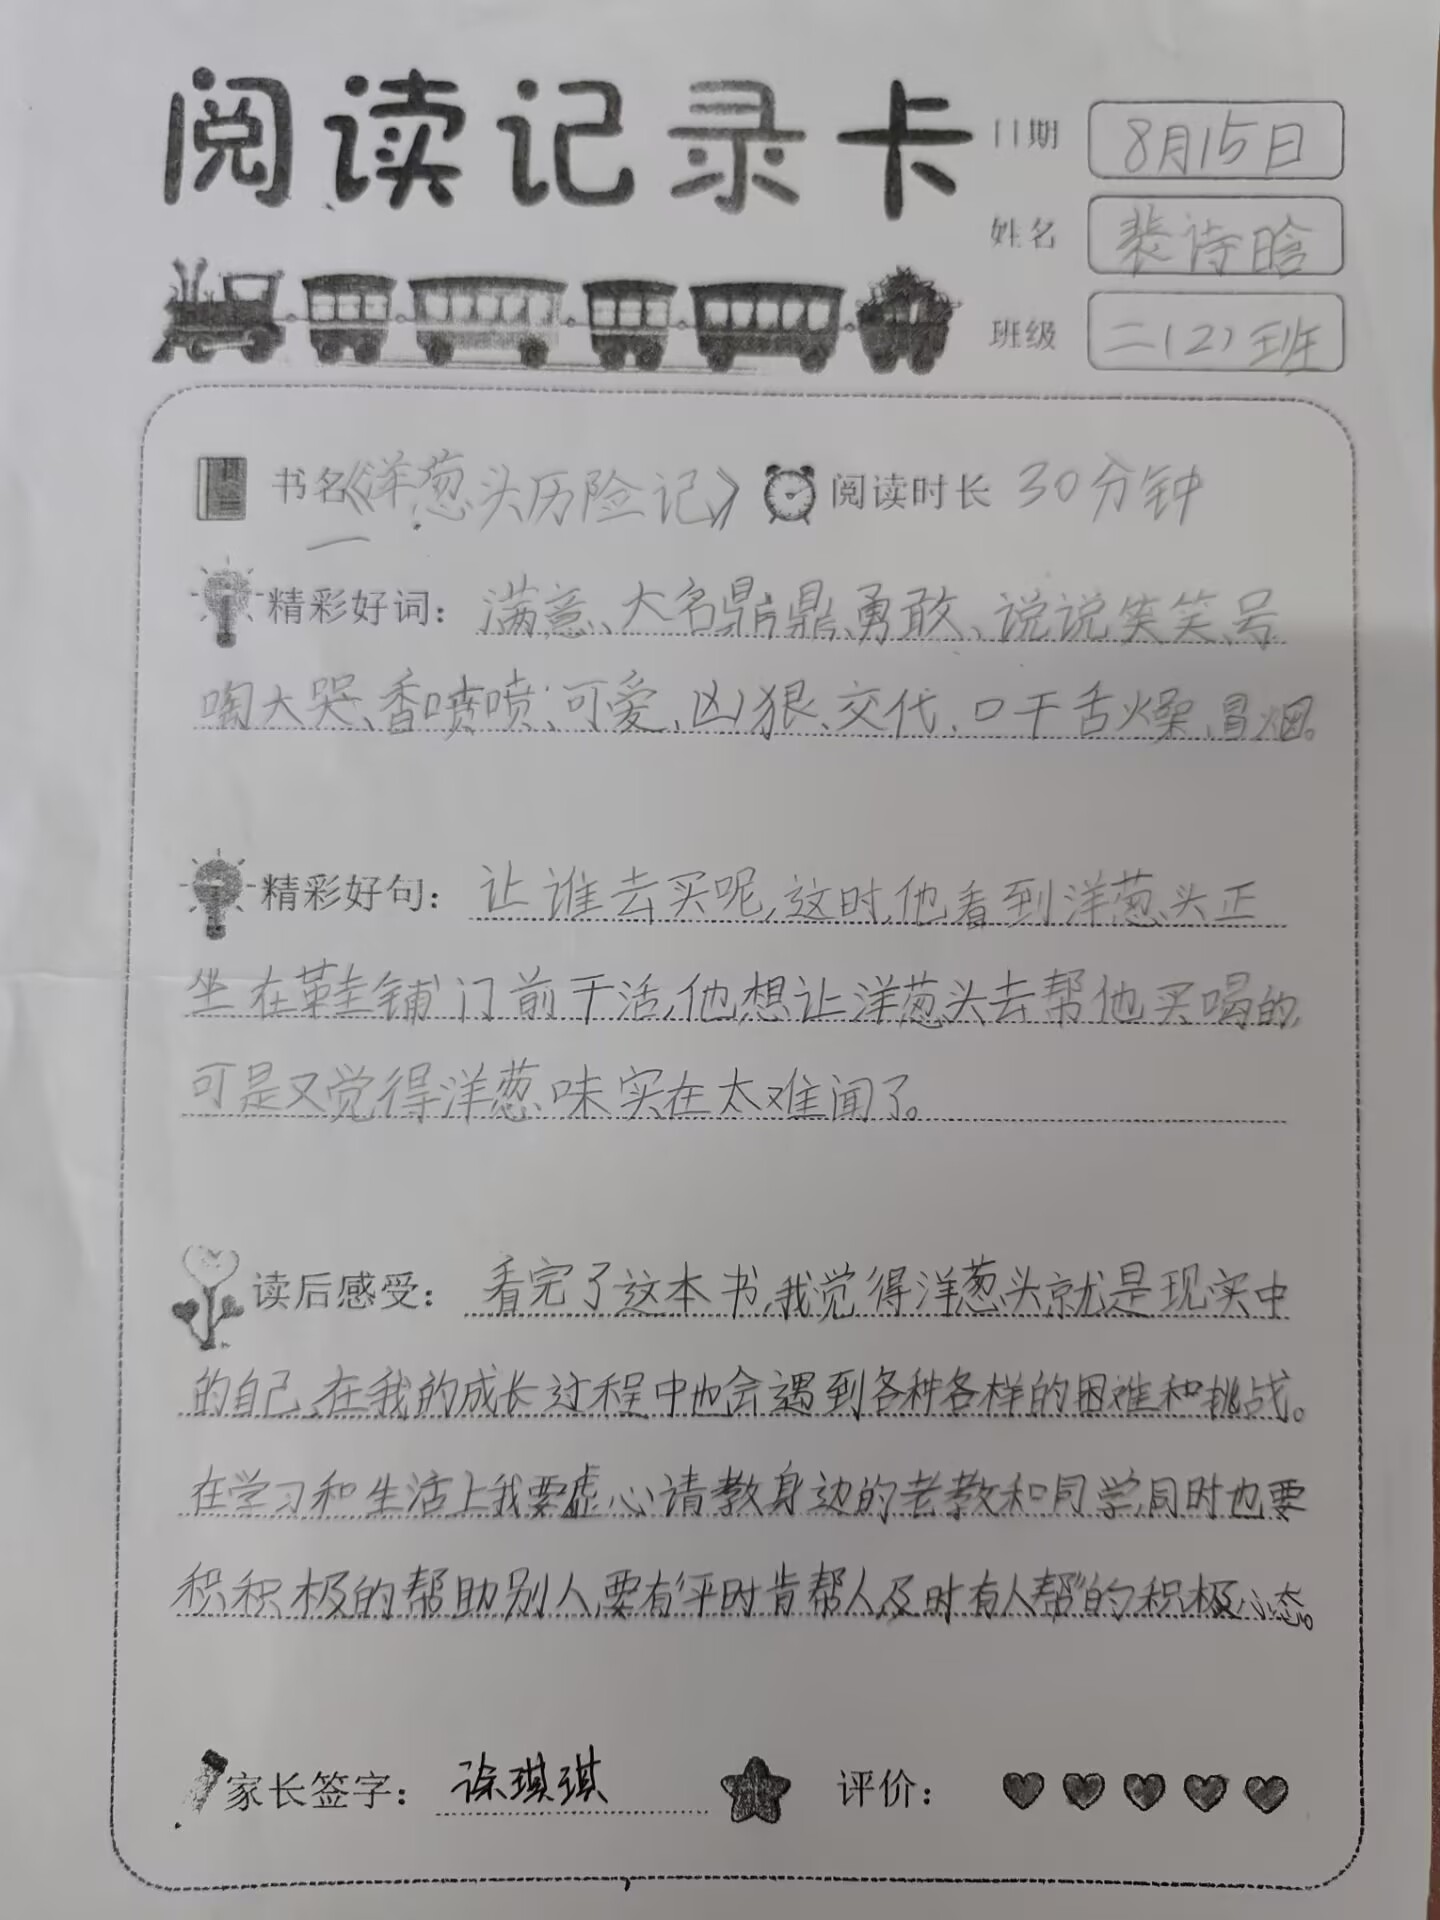 阅读记录卡
日期 8月15日
姓名 裴诗晗
班级 二(2)班
书名《洋葱头历险记》 阅读时长 30分钟
精彩好词：满意、大名鼎鼎、勇敢、说说笑笑、号
啕大哭、香喷喷、可爱、凶狠、交代、口干舌燥、冒烟。
精彩好句：让谁去买呢，这时，他看到洋葱头正
坐在鞋铺门前干活，他想让洋葱头去帮他买喝的，
可是又觉得洋葱味实在太难闻了。
读后感受：看完了这本书，我觉得洋葱头就是现实中
的自己，在我的成长过程中也会遇到各种各样的困难和挑战。
在学习和生活上我要虚心请教身边的老教和同学，同时也要
积积极的帮助别人，要有“平时肯帮人，及时有人帮”的积极心态。
家长签字：徐琪琪 评价：